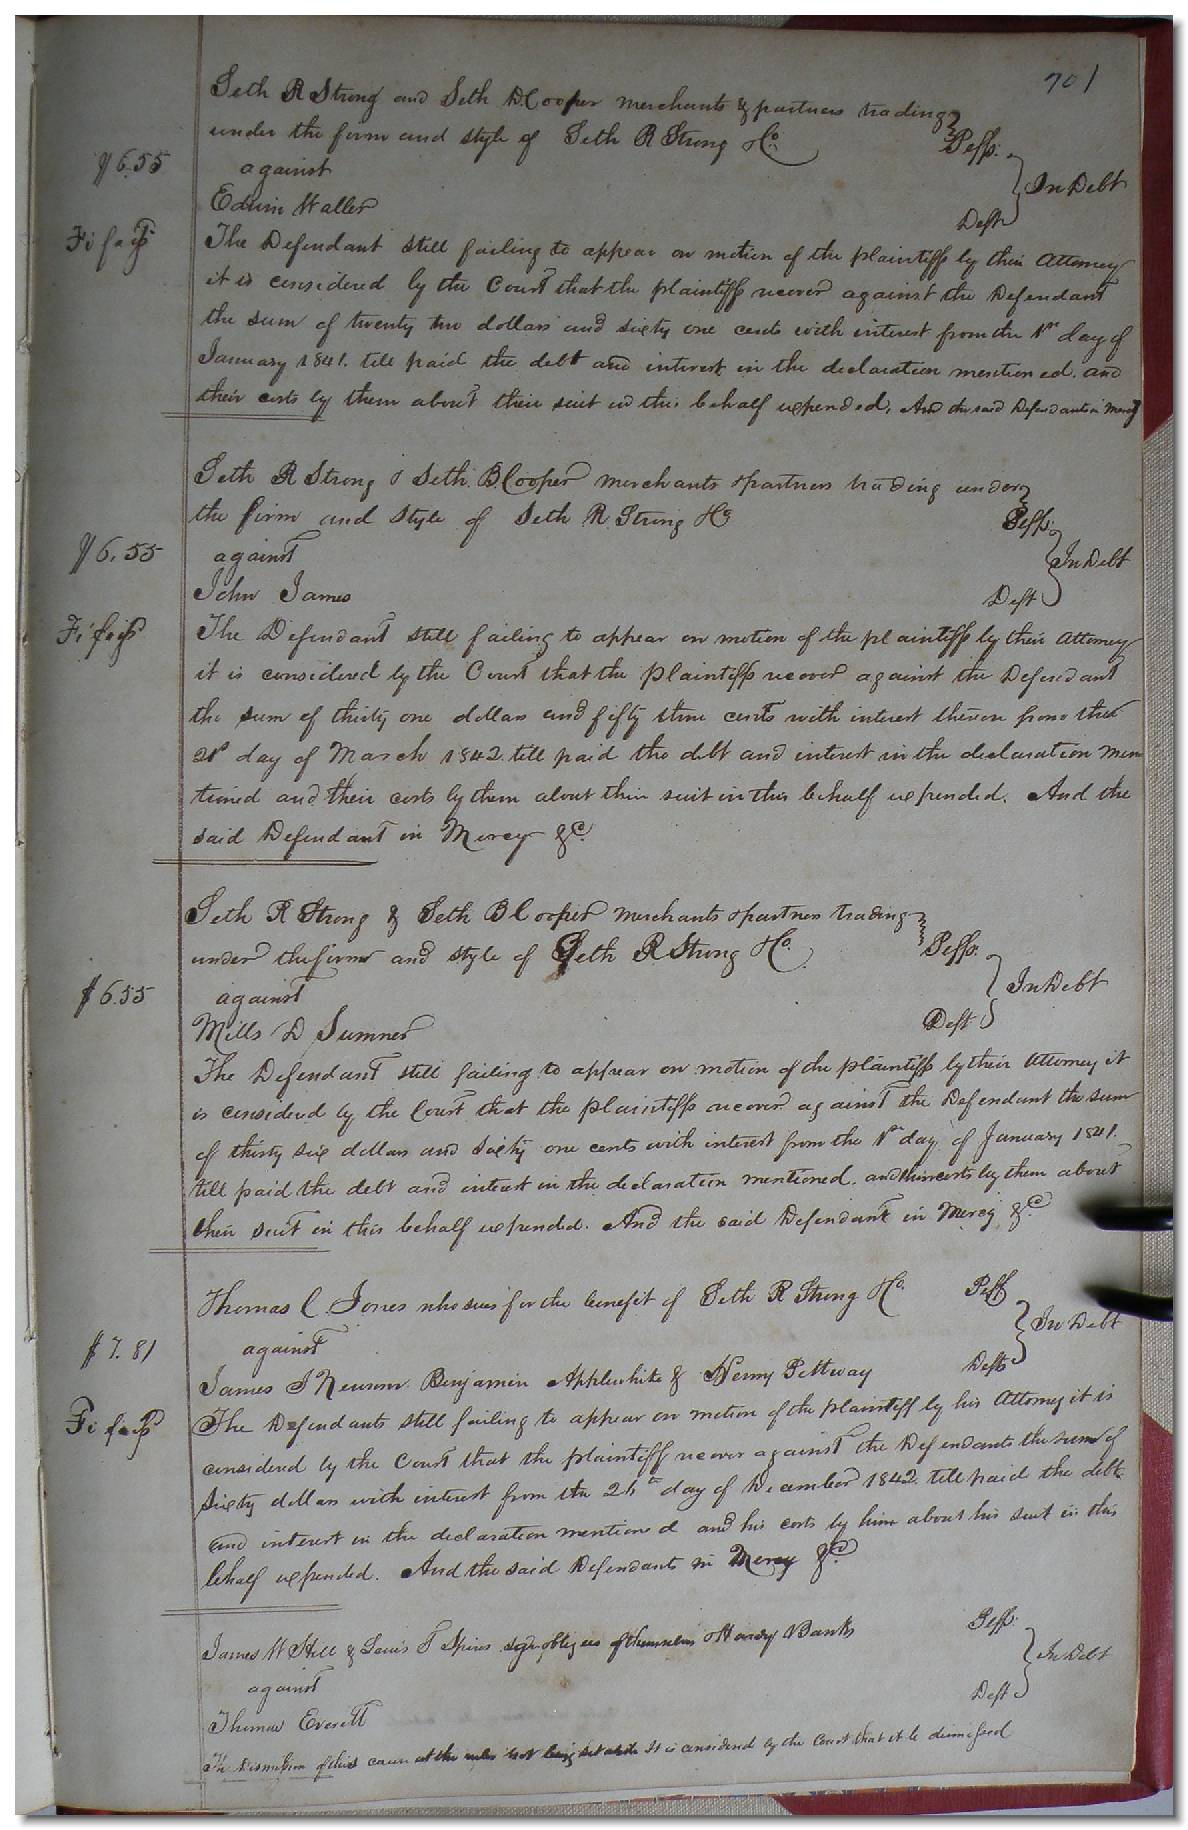 701
Seth R Strong and Seth B Cooper merchants & partners trading
under the firm and style of Seth R Strong & Co. Plffs.
$6.55
against In Debt
Edwin Waller Deft
Fi fa
The Defendant still failing to appear on motion of the plaintiffs by their Attorney
it is considered by the Court that the plaintiffs recover against the Defendant
the sum of twenty two dollars and sixty one cents with interest from the 1st day of
January 1841. till paid the debt and interest in the declaration mentioned. and
their costs by them about their suit in this behalf expended, And the said Defendant in Mercy
Seth R Strong & Seth B Cooper merchants & partners trading under
the firm and style of Seth R Strong & Co Plffs.
$6.55
against In Debt
John James Deft
Fi fa
The Defendant still failing to appear on motion of the plaintiffs by their Attorney
it is considered by the Court that the plaintiffs recover against the Defendant
the sum of thirty one dollars and fifty three cents with interest thereon from the
day of March 1842. till paid the debt and interest in the declaration men
tioned and their costs by them about their suit in this behalf expended. And the
said Defendant in Mercy &c.
Seth R Strong & Seth B Cooper merchants & partners trading
under the firm and style of Seth R Strong & Co. Plffs.
$6.55
against In Debt
Mills D Sumner Deft
The Defendant still failing to appear on motion of the plaintiffs by their Attorney it
is considered by the Court that the plaintiffs recover against the Defendant the sum
of thirty six dollars and sixty one cents with interest from the 1st day of January 1841.
till paid the debt and interest in the declaration mentioned. and their costs by them about
their suit in this behalf expended. And the said Defendant in Mercy &c
Thomas C Jones who sues for the benefit of Seth R Strong & Co. Plff
$7.81
against In Debt
James Newsom Benjamin Applewhite & Henry Pettway Defts
Fi fa
The Defendants still failing to appear on motion of the plaintiff by his Attorney it is
considered by the Court that the plaintiff recover against the Defendants the sum of
Sixty dollars with interest from the day of December 1842. till paid the debt
and interest in the declaration mentioned and his costs by him about his suit in this
behalf expended. And the said Defendants in Mercy &c
James W Hill & Lewis T Spivs obligees of themselves & Hardy Banks Plffs.
against In Debt
Thomas Everett Deft
The Dismission of this cause at the rules not being set aside It is considered by the Court that it be dismissed